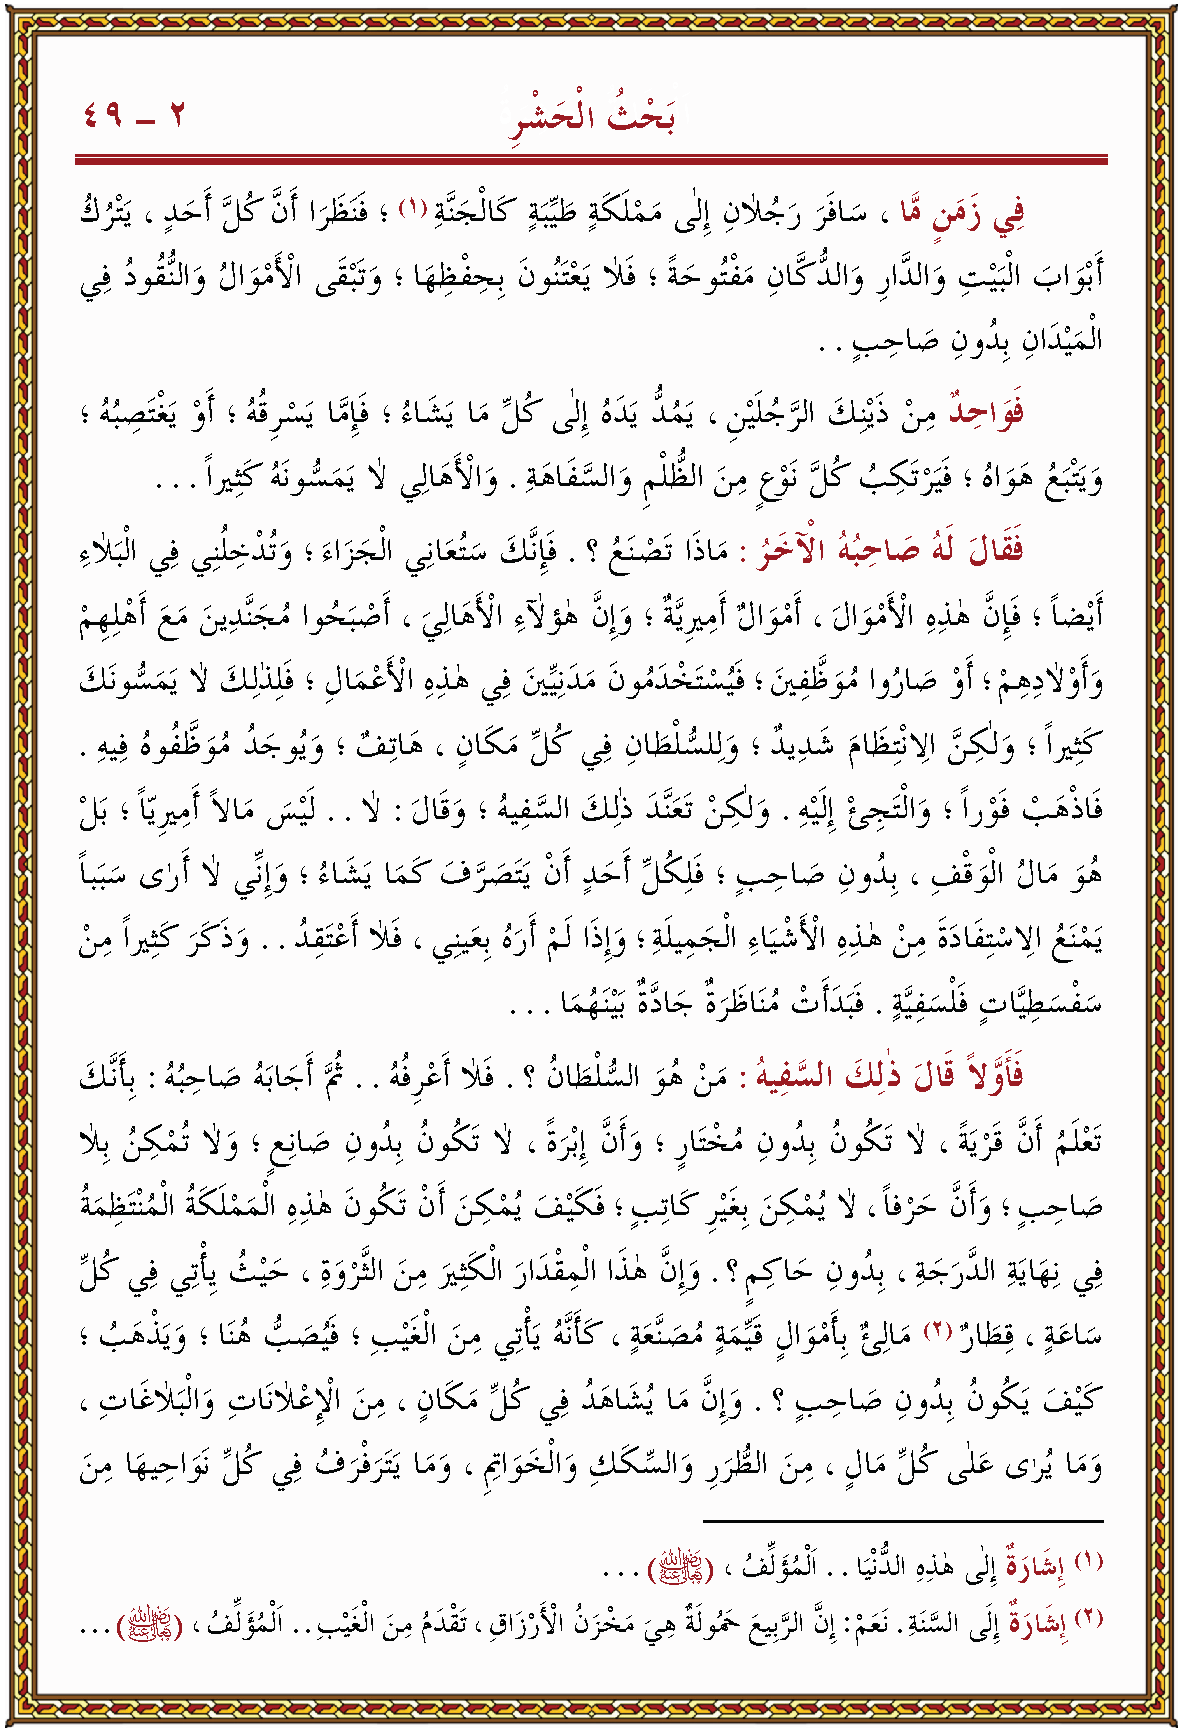 بَحْثُ الْحَشْرِ
٢ – ٤٩
فِي زَمَنٍ مَّا ، سَافَرَ رَجُلَانِ إِلَى مَمْلَكَةٍ طَيِّبَةٍ كَالْجَنَّةِ (١) ؛ فَنَظَرَا أَنَّ كُلَّ أَحَدٍ ، يَتْرُكُ
أَبْوَابَ الْبَيْتِ وَالدَّارِ وَالدُّكَّانِ مَفْتُوحَةً ؛ فَلَا يَعْتَنُونَ بِحِفْظِهَا ؛ وَتَبْقَى الْأَمْوَالُ وَالنُّقُودُ فِي
الْمَيْدَانِ بِدُونِ صَاحِبٍ . .
فَوَاحِدٌ مِنْ ذَيْنِكَ الرَّجُلَيْنِ ، يَمُدُّ يَدَهُ إِلَى كُلِّ مَا يَشَاءُ ؛ فَإِمَّا يَسْرِقُهُ ؛ أَوْ يَغْتَصِبُهُ ؛
وَيَتْبَعُ هَوَاهُ ؛ فَيَرْتَكِبُ كُلَّ نَوْعٍ مِنَ الظُّلْمِ وَالسَّفَاهَةِ . وَالْأَهَالِي لَا يَمَسُّونَهُ كَثِيراً . . .
فَقَالَ لَهُ صَاحِبُهُ الْآخَرُ : مَاذَا تَصْنَعُ ؟ . فَإِنَّكَ سَتُعَانِي الْجَزَاءَ ؛ وَتُدْخِلُنِي فِي الْبَلَاءِ
أَيْضاً ؛ فَإِنَّ هٰذِهِ الْأَمْوَالَ ، أَمْوَالٌ أَمِيرِيَّةٌ ؛ وَإِنَّ هٰؤُلَآءِ الْأَهَالِيَ ، أَصْبَحُوا مُجَنَّدِينَ مَعَ أَهْلِهِمْ
وَأَوْلَادِهِمْ ؛ أَوْ صَارُوا مُوَظَّفِينَ ؛ فَيُسْتَخْدَمُونَ مَدَنِيِّينَ فِي هٰذِهِ الْأَعْمَالِ ؛ فَلِذٰلِكَ لَا يَمَسُّونَكَ
كَثِيراً ؛ وَلٰكِنَّ الْاِنْتِظَامَ شَدِيدٌ ؛ وَلِلسُّلْطَانِ فِي كُلِّ مَكَانٍ ، هَاتِفٌ ؛ وَيُوجَدُ مُوَظَّفُوهُ فِيهِ .
فَاذْهَبْ فَوْراً ؛ وَالْتَجِئْ إِلَيْهِ . وَلٰكِنْ تَعَنَّدَ ذٰلِكَ السَّفِيهُ ؛ وَقَالَ : لَا . . لَيْسَ مَالاً أَمِيرِيّاً ؛ بَلْ
هُوَ مَالُ الْوَقْفِ ، بِدُونِ صَاحِبٍ ؛ فَلِكُلِّ أَحَدٍ أَنْ يَتَصَرَّفَ كَمَا يَشَاءُ ؛ وَإِنِّي لَا أَرٰى سَبَباً
يَمْنَعُ الْاِسْتِفَادَةَ مِنْ هٰذِهِ الْأَشْيَاءِ الْجَمِيلَةِ ؛ وَإِذَا لَمْ أَرَهُ بِعَيْنِي ، فَلَا أَعْتَقِدُ . . وَذَكَرَ كَثِيراً مِنْ
سَفْسَطِيَّاتٍ فَلْسَفِيَّةٍ . فَبَدَأَتْ مُنَاظَرَةٌ جَادَّةٌ بَيْنَهُمَا . . .
فَأَوَّلاً قَالَ ذٰلِكَ السَّفِيهُ : مَنْ هُوَ السُّلْطَانُ ؟ . فَلَا أَعْرِفُهُ . . ثُمَّ أَجَابَهُ صَاحِبُهُ : بِأَنَّكَ
تَعْلَمُ أَنَّ قَرْيَةً ، لَا تَكُونُ بِدُونِ مُخْتَارٍ ؛ وَأَنَّ إِبْرَةً ، لَا تَكُونُ بِدُونِ صَانِعٍ ؛ وَلَا تُمْكِنُ بِلَا
صَاحِبٍ ؛ وَأَنَّ حَرْفاً ، لَا يُمْكِنَ بِغَيْرِ كَاتِبٍ ؛ فَكَيْفَ يُمْكِنَ أَنْ تَكُونَ هٰذِهِ الْمَمْلَكَةُ الْمُنْتَظِمَةُ
فِي نِهَايَةِ الدَّرَجَةِ ، بِدُونِ حَاكِمٍ ؟ . وَإِنَّ هٰذَا الْمِقْدَارَ الْكَثِيرَ مِنَ الثَّرْوَةِ ، حَيْثُ يَأْتِي فِي كُلِّ
سَاعَةٍ ، قِطَارٌ (٢) مَالِئٌ بِأَمْوَالٍ قَيِّمَةٍ مُصَنَّعَةٍ ، كَأَنَّهُ يَأْتِي مِنَ الْغَيْبِ ؛ فَيُصَبُّ هُنَا ؛ وَيَذْهَبُ ؛
كَيْفَ يَكُونُ بِدُونِ صَاحِبٍ ؟ . وَإِنَّ مَا يُشَاهَدُ فِي كُلِّ مَكَانٍ ، مِنَ الْإِعْلَانَاتِ وَالْبَلَاغَاتِ ،
وَمَا يُرٰى عَلٰى كُلِّ مَالٍ ، مِنَ الطُّرَرِ وَالسِّكَكِ وَالْخَوَاتِمِ ، وَمَا يَتَرَفْرَفُ فِي كُلِّ نَوَاحِيهَا مِنَ
(١) إِشَارَةٌ إِلٰى هٰذِهِ الدُّنْيَا . . اَلْمُؤَلِّفُ ، (رَضِيَ اللهُ تَعَالَى عَنْهُ) . . .
(٢) إِشَارَةٌ إِلَى السَّنَةِ . نَعَمْ : إِنَّ الرَّبِيعَ حَمُولَةٌ هِيَ مَخْزَنُ الْأَرْزَاقِ ، تَقْدَمُ مِنَ الْغَيْبِ . . اَلْمُؤَلِّفُ ، (رَضِيَ اللهُ تَعَالَى عَنْهُ) . . .